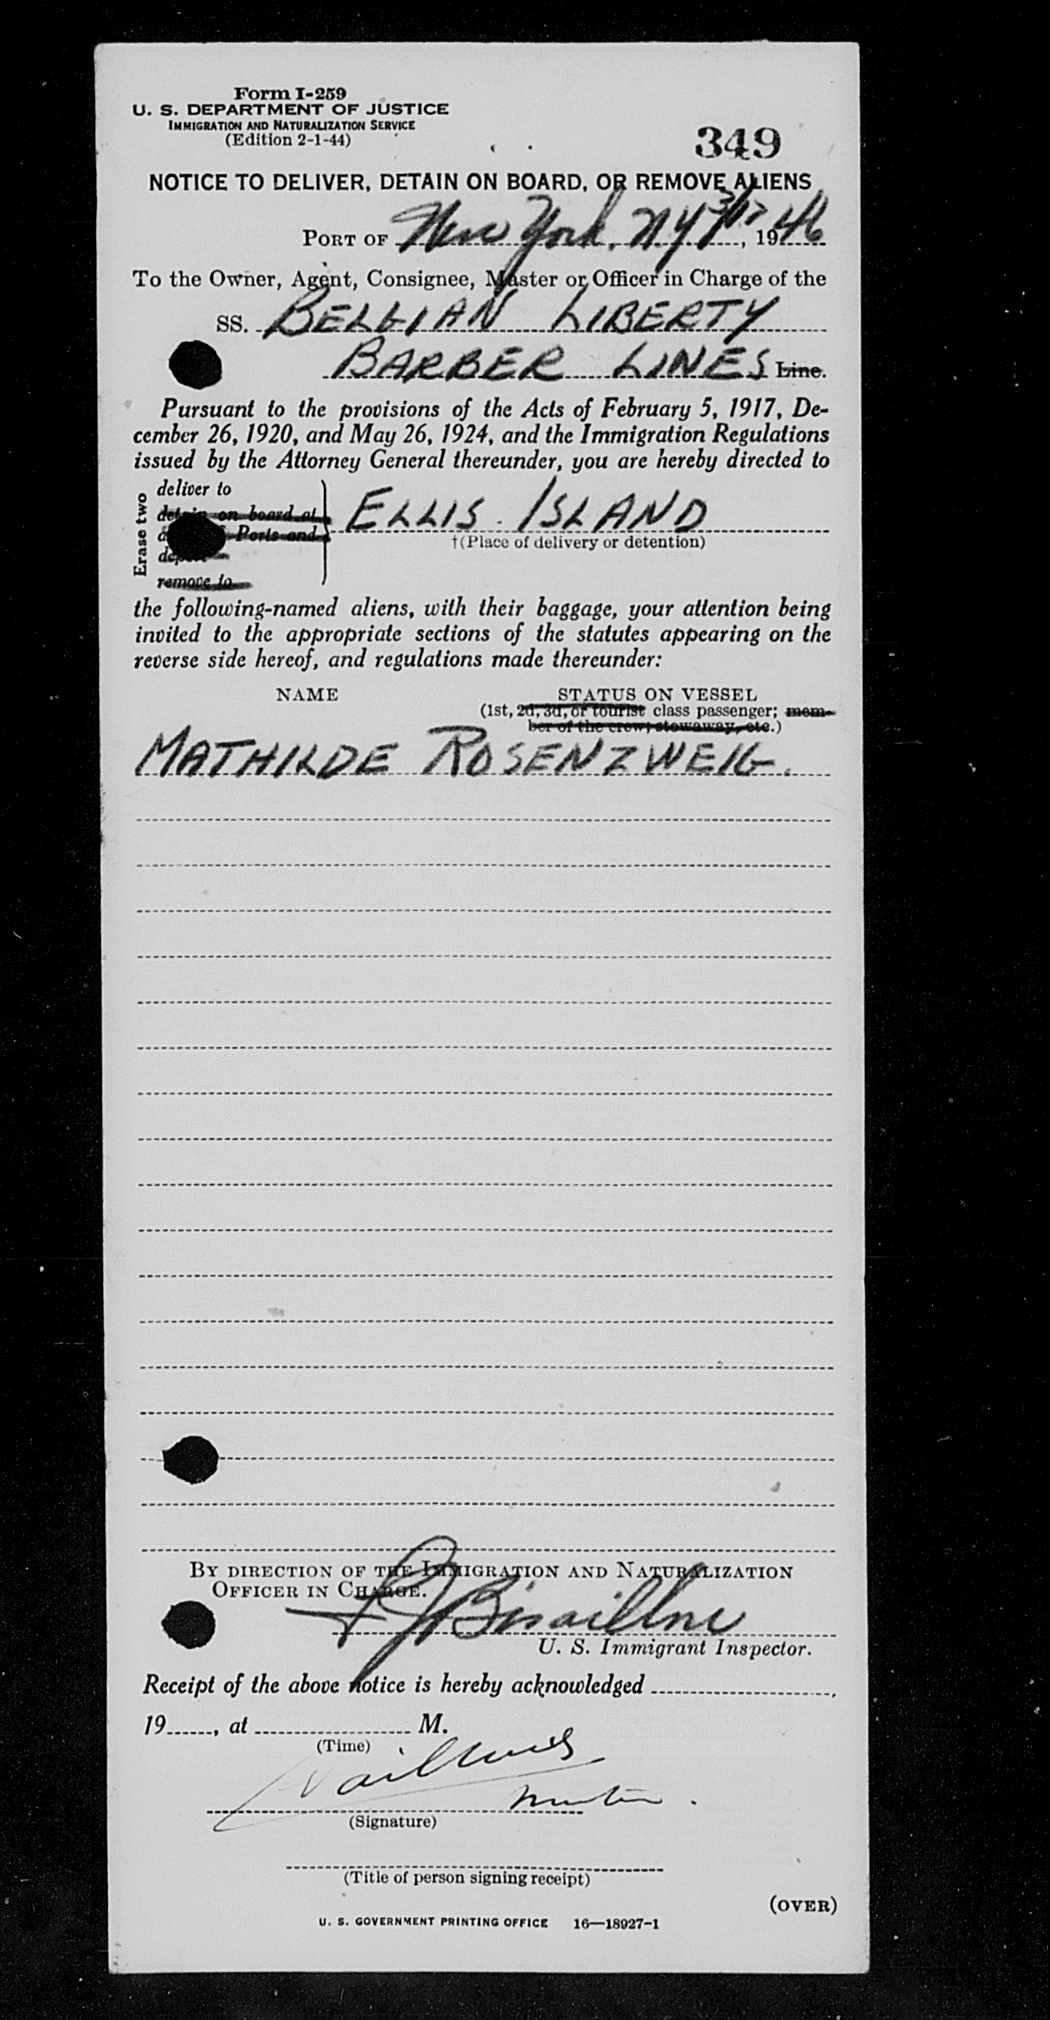 Form I-259
U. S. DEPARTMENT OF JUSTICE
IMMIGRATION AND NATURALIZATION SERVICE
(Edition 2-1-44)
349
NOTICE TO DELIVER, DETAIN ON BOARD, OR REMOVE ALIENS
PORT OF New York, NY 3/17, 1946
To the Owner, Agent, Consignee, Master or Officer in Charge of the
SS. BELGIAN LIBERTY
BARBER LINES Line.
Pursuant to the provisions of the Acts of February 5, 1917, De-
cember 26, 1920, and May 26, 1924, and the Immigration Regulations
issued by the Attorney General thereunder, you are hereby directed to
Erase two
deliver to
detain on board at
Ports and
remove to
ELLIS ISLAND
†(Place of delivery or detention)
the following-named aliens, with their baggage, your attention being
invited to the appropriate sections of the statutes appearing on the
reverse side hereof, and regulations made thereunder:
NAME STATUS ON VESSEL
(1st, 2d, 3d, or tourist class passenger; mem-
ber of the crew; stowaway, etc.)
MATHILDE ROSENZWEIG.
BY DIRECTION OF THE IMMIGRATION AND NATURALIZATION
OFFICER IN CHARGE.
U. S. Immigrant Inspector.
Receipt of the above notice is hereby acknowledged
19, at M.
(Time)
(Signature)
(Title of person signing receipt)
(OVER)
U. S. GOVERNMENT PRINTING OFFICE 16—18927-1